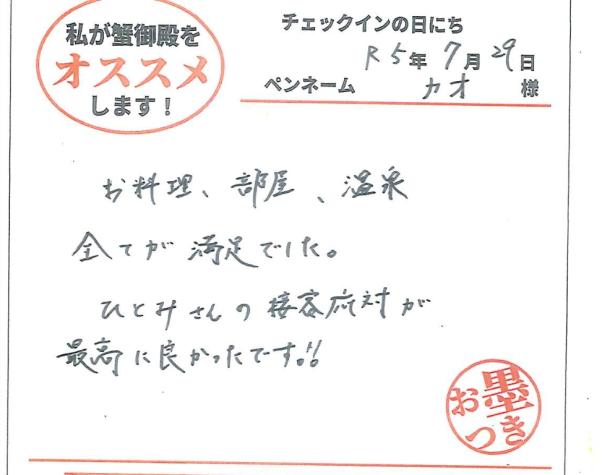 私が蟹御殿を
オススメ
します！
チェックインの日にち
R5年7月29日
ペンネーム カオ 様
お料理、部屋、温泉
全てが満足でした。
ひとみさんの接客応対が
最高に良かったです!!
お墨
つき